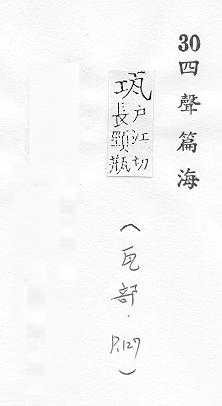 30
四聲篇海
瓨
戶江切
長頸瓶
(瓦部．P.127)